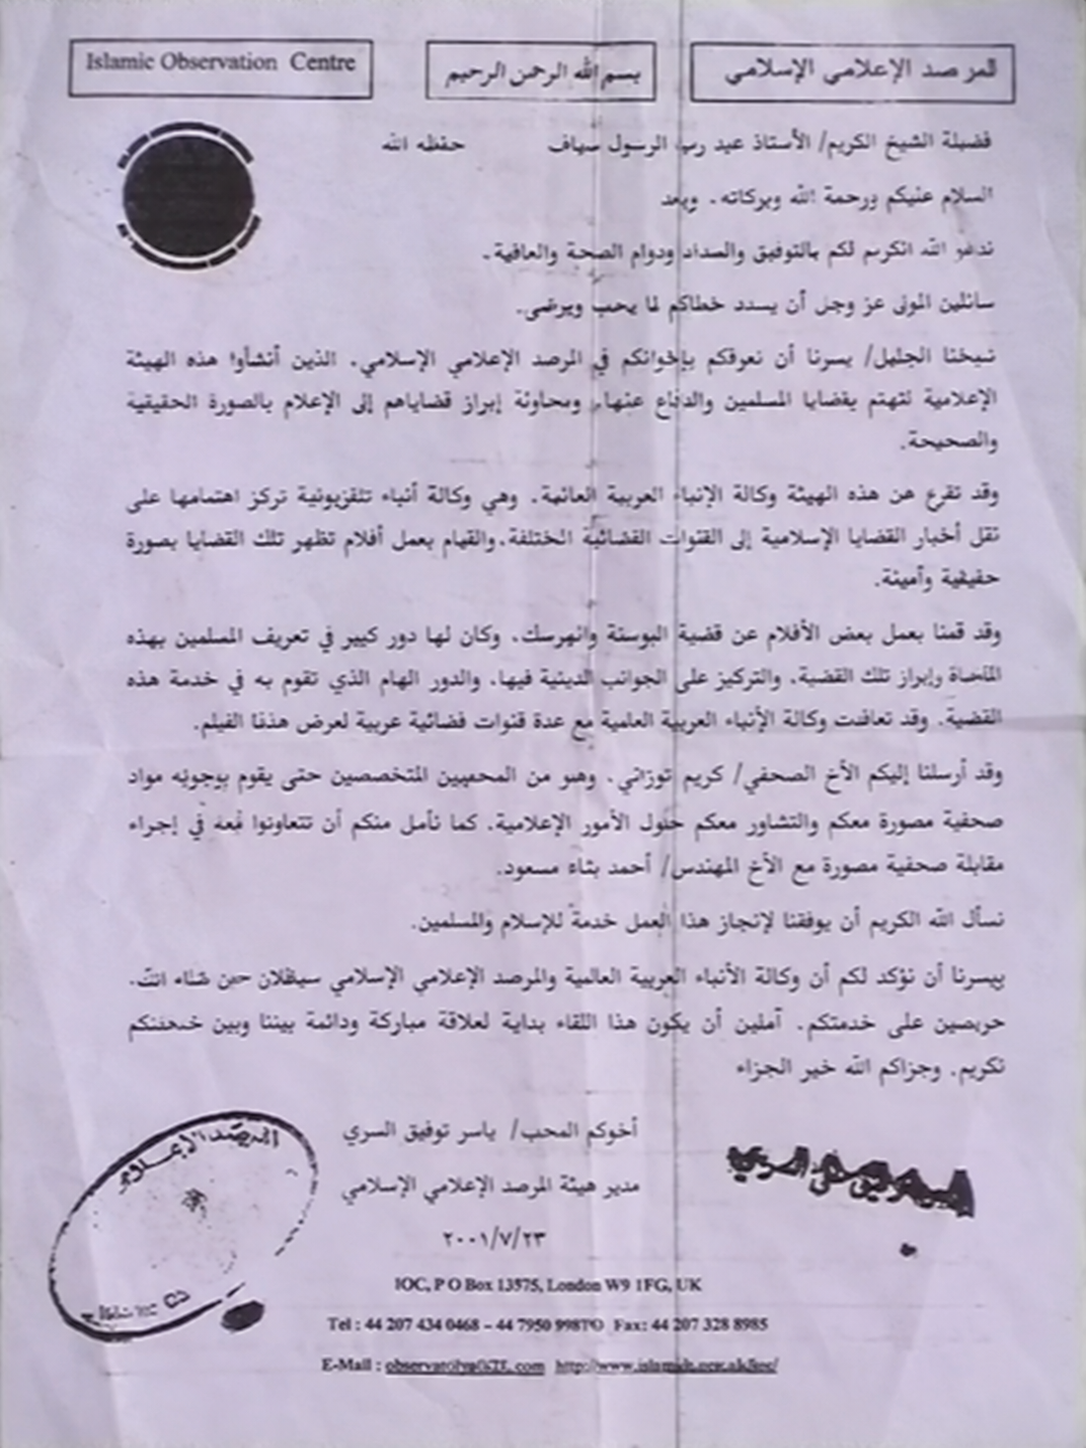 Islamic Observation Centre
بسم الله الرحمن الرحيم
المرصد الإعلامي الإسلامي
فضيلة الشيخ الكريم/ الأستاذ عبد رب الرسول سياف حفظه الله
السلام عليكم ورحمة الله وبركاته. وبعد
ندعو الله الكريم لكم بالتوفيق والسداد ودوام الصحة والعافية.
سائلين المولى عز وجل أن يسدد خطاكم لما يحب ويرضى.
شيخنا الجليل/ يسرنا أن نعرفكم بإخوانكم في المرصد الإعلامي الإسلامي. الذين أنشأوا هذه الهيئة
الإعلامية لتهتم بقضايا المسلمين والدفاع عنها. ومحاولة إبراز قضاياهم إلى الإعلام بالصورة الحقيقية
والصحيحة.
وقد تفرع عن هذه الهيئة وكالة الإنباء العربية العالمية. وهي وكالة أنباء تلفزيونية تركز اهتمامها على
نقل أخبار القضايا الإسلامية إلى القنوات الفضائية المختلفة. والقيام بعمل أفلام تظهر تلك القضايا بصورة
حقيقية وأمينة.
وقد قمنا بعمل بعض الأفلام عن قضية البوسنة والهرسك. وكان لها دور كبير في تعريف المسلمين بهذه
المأساة وإبراز تلك القضية. والتركيز على الجوانب الدينية فيها. والدور الهام الذي تقوم به في خدمة هذه
القضية. وقد تعاقدت وكالة الأنباء العربية العلمية مع عدة قنوات فضائية عربية لعرض هذا الفيلم.
وقد أرسلنا إليكم الأخ الصحفي/ كريم توزاني. وهو من الصحفيين المتخصصين حتى يقوم مواد
صحفية مصورة معكم والتشاور معكم حول الأمور الإعلامية. كما نأمل منكم أن تتعاونوا معه في إجراء
مقابلة صحفية مصورة مع الأخ المهندس/ أحمد شاه مسعود.
نسأل الله الكريم أن يوفقنا لإنجاز هذا العمل خدمة للإسلام والمسلمين.
ويسرنا أن نؤكد لكم أن وكالة الأنباء العربية العالمية والمرصد الإعلامي الإسلامي سيظلان شاء الله.
حريصين على خدمتكم. آملين أن يكون هذا اللقاء بداية لعلاقة مباركة ودائمة بيننا وبين
الكريم. وجزاكم الله خير الجزاء
أخوكم المحب/ ياسر توفيق السري
مدير هيئة المرصد الإعلامي الإسلامي
٢٠٠١/٧/٢٣
المرصد الإعلامي
IOC, P O Box 13575, London W9 1FG, UK
Tel : 44 207 434 0468 – 44 7950 Fax: 44 207 328 8985
E-Mail :